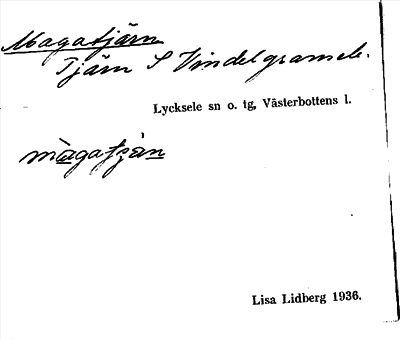 Magatjärn
Tjärn S Vindelgransele.
Lycksele sn o. tg, Västerbottens l.
màgatjà̩n
Lisa Lidberg 1936.